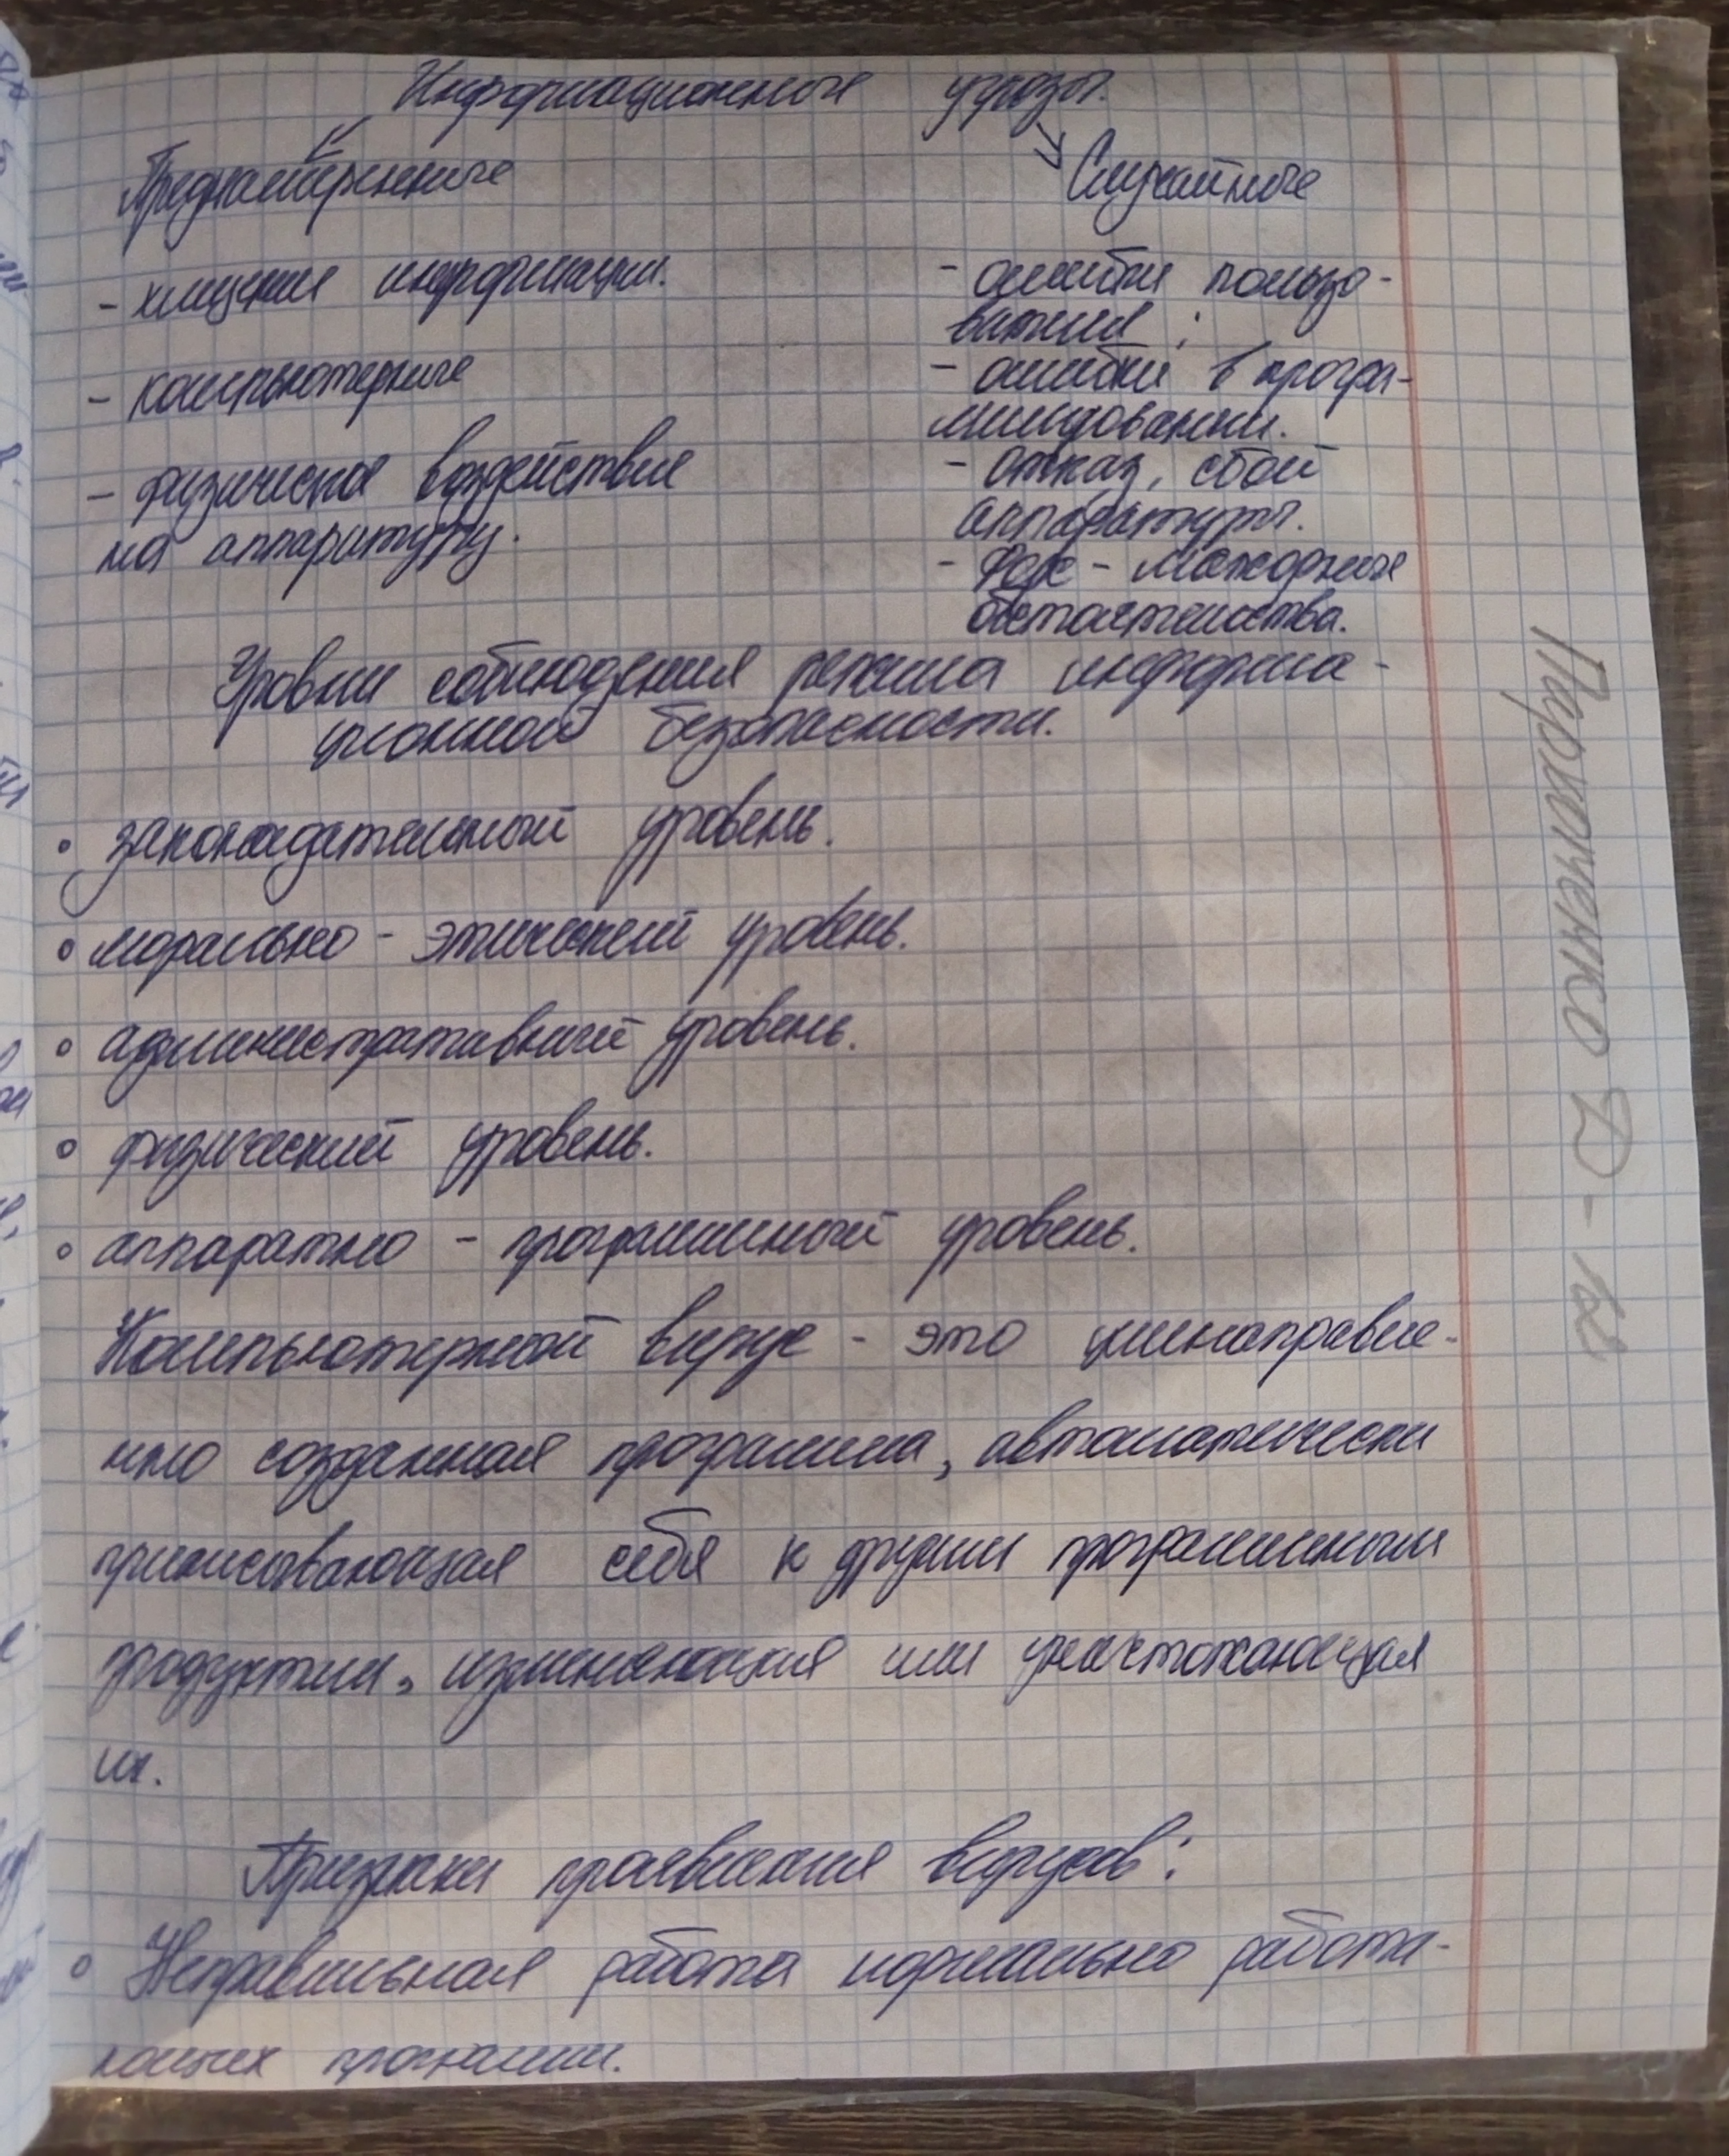 Информационные угрозы.
Преднамеренные
Случайные
- хищение информации.
- компьютерные
- физическое воздействие
на аппаратуру.
- ошибки пользо-
вателя;
- ошибки в програ-
ммировании.
- отказ, сбой
аппаратуры.
- форс-мажорные
обстоятельства.
Уровни соблюдения режима информа-
ционной безопасности.
• законодательный уровень.
• морально-этический уровень.
• административный уровень.
• физический уровень.
• аппаратно-программный уровень.
Компьютерный вирус - это целенаправле-
нно созданная программа, автоматически
приписывающая себя к другим программным
продуктам, изменяющая или уничтожающая
их.
Признаки проявления вирусов:
• Неправильная работа нормально работа-
ющих программ.